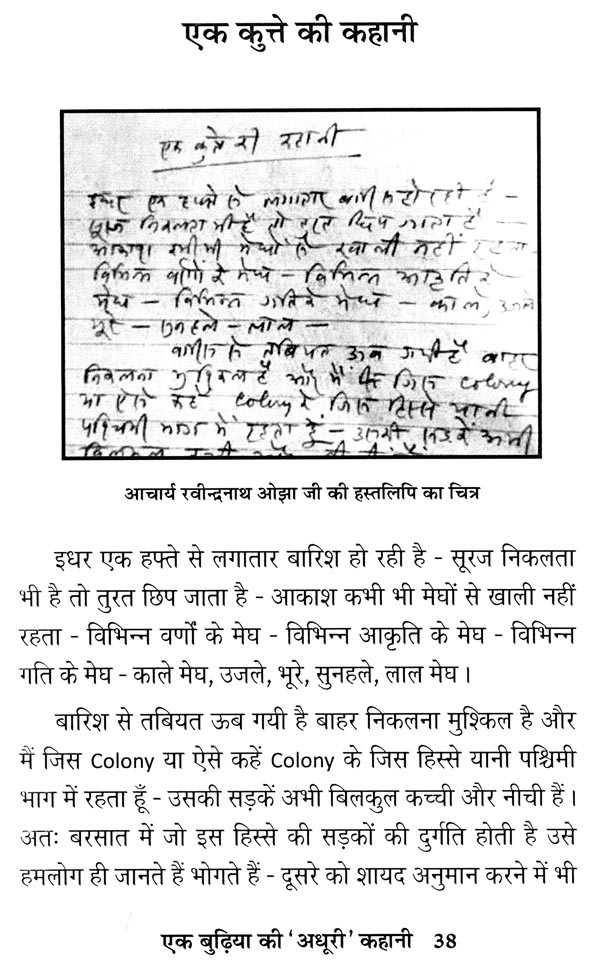 एक कुत्ते की कहानी
एक कुत्ते की कहानी
इधर एक हफ्ते से लगातार बारिश हो रही है -
सूरज निकलता भी है तो तुरत छिप जाता है -
आकाश कभी भी मेघों से खाली नहीं रहता -
विभिन्न वर्णों के मेघ - विभिन्न आकृति के
मेघ - विभिन्न गति के मेघ - काले, उजले
भूरे - सुनहले - लाल -
बारिश से तबियत ऊब गयी है बाहर
निकलना मुश्किल है और मैं जिस Colony
या ऐसे कहें Colony के जिस हिस्से यानी
पश्चिमी भाग में रहता हूँ - उसकी सड़कें अभी
आचार्य रवीन्द्रनाथ ओझा जी की हस्तलिपि का चित्र
इधर एक हफ्ते से लगातार बारिश हो रही है - सूरज निकलता
भी है तो तुरत छिप जाता है - आकाश कभी भी मेघों से खाली नहीं
रहता - विभिन्न वर्णों के मेघ - विभिन्न आकृति के मेघ - विभिन्न
गति के मेघ - काले मेघ, उजले, भूरे, सुनहले, लाल मेघ।
बारिश से तबियत ऊब गयी है बाहर निकलना मुश्किल है और
मैं जिस Colony या ऐसे कहें Colony के जिस हिस्से यानी पश्चिमी
भाग में रहता हूँ - उसकी सड़कें अभी बिलकुल कच्ची और नीची हैं।
अतः बरसात में जो इस हिस्से की सड़कों की दुर्गति होती है उसे
हमलोग ही जानते हैं भोगते हैं - दूसरे को शायद अनुमान करने में भी
एक बुढ़िया की 'अधूरी' कहानी 38